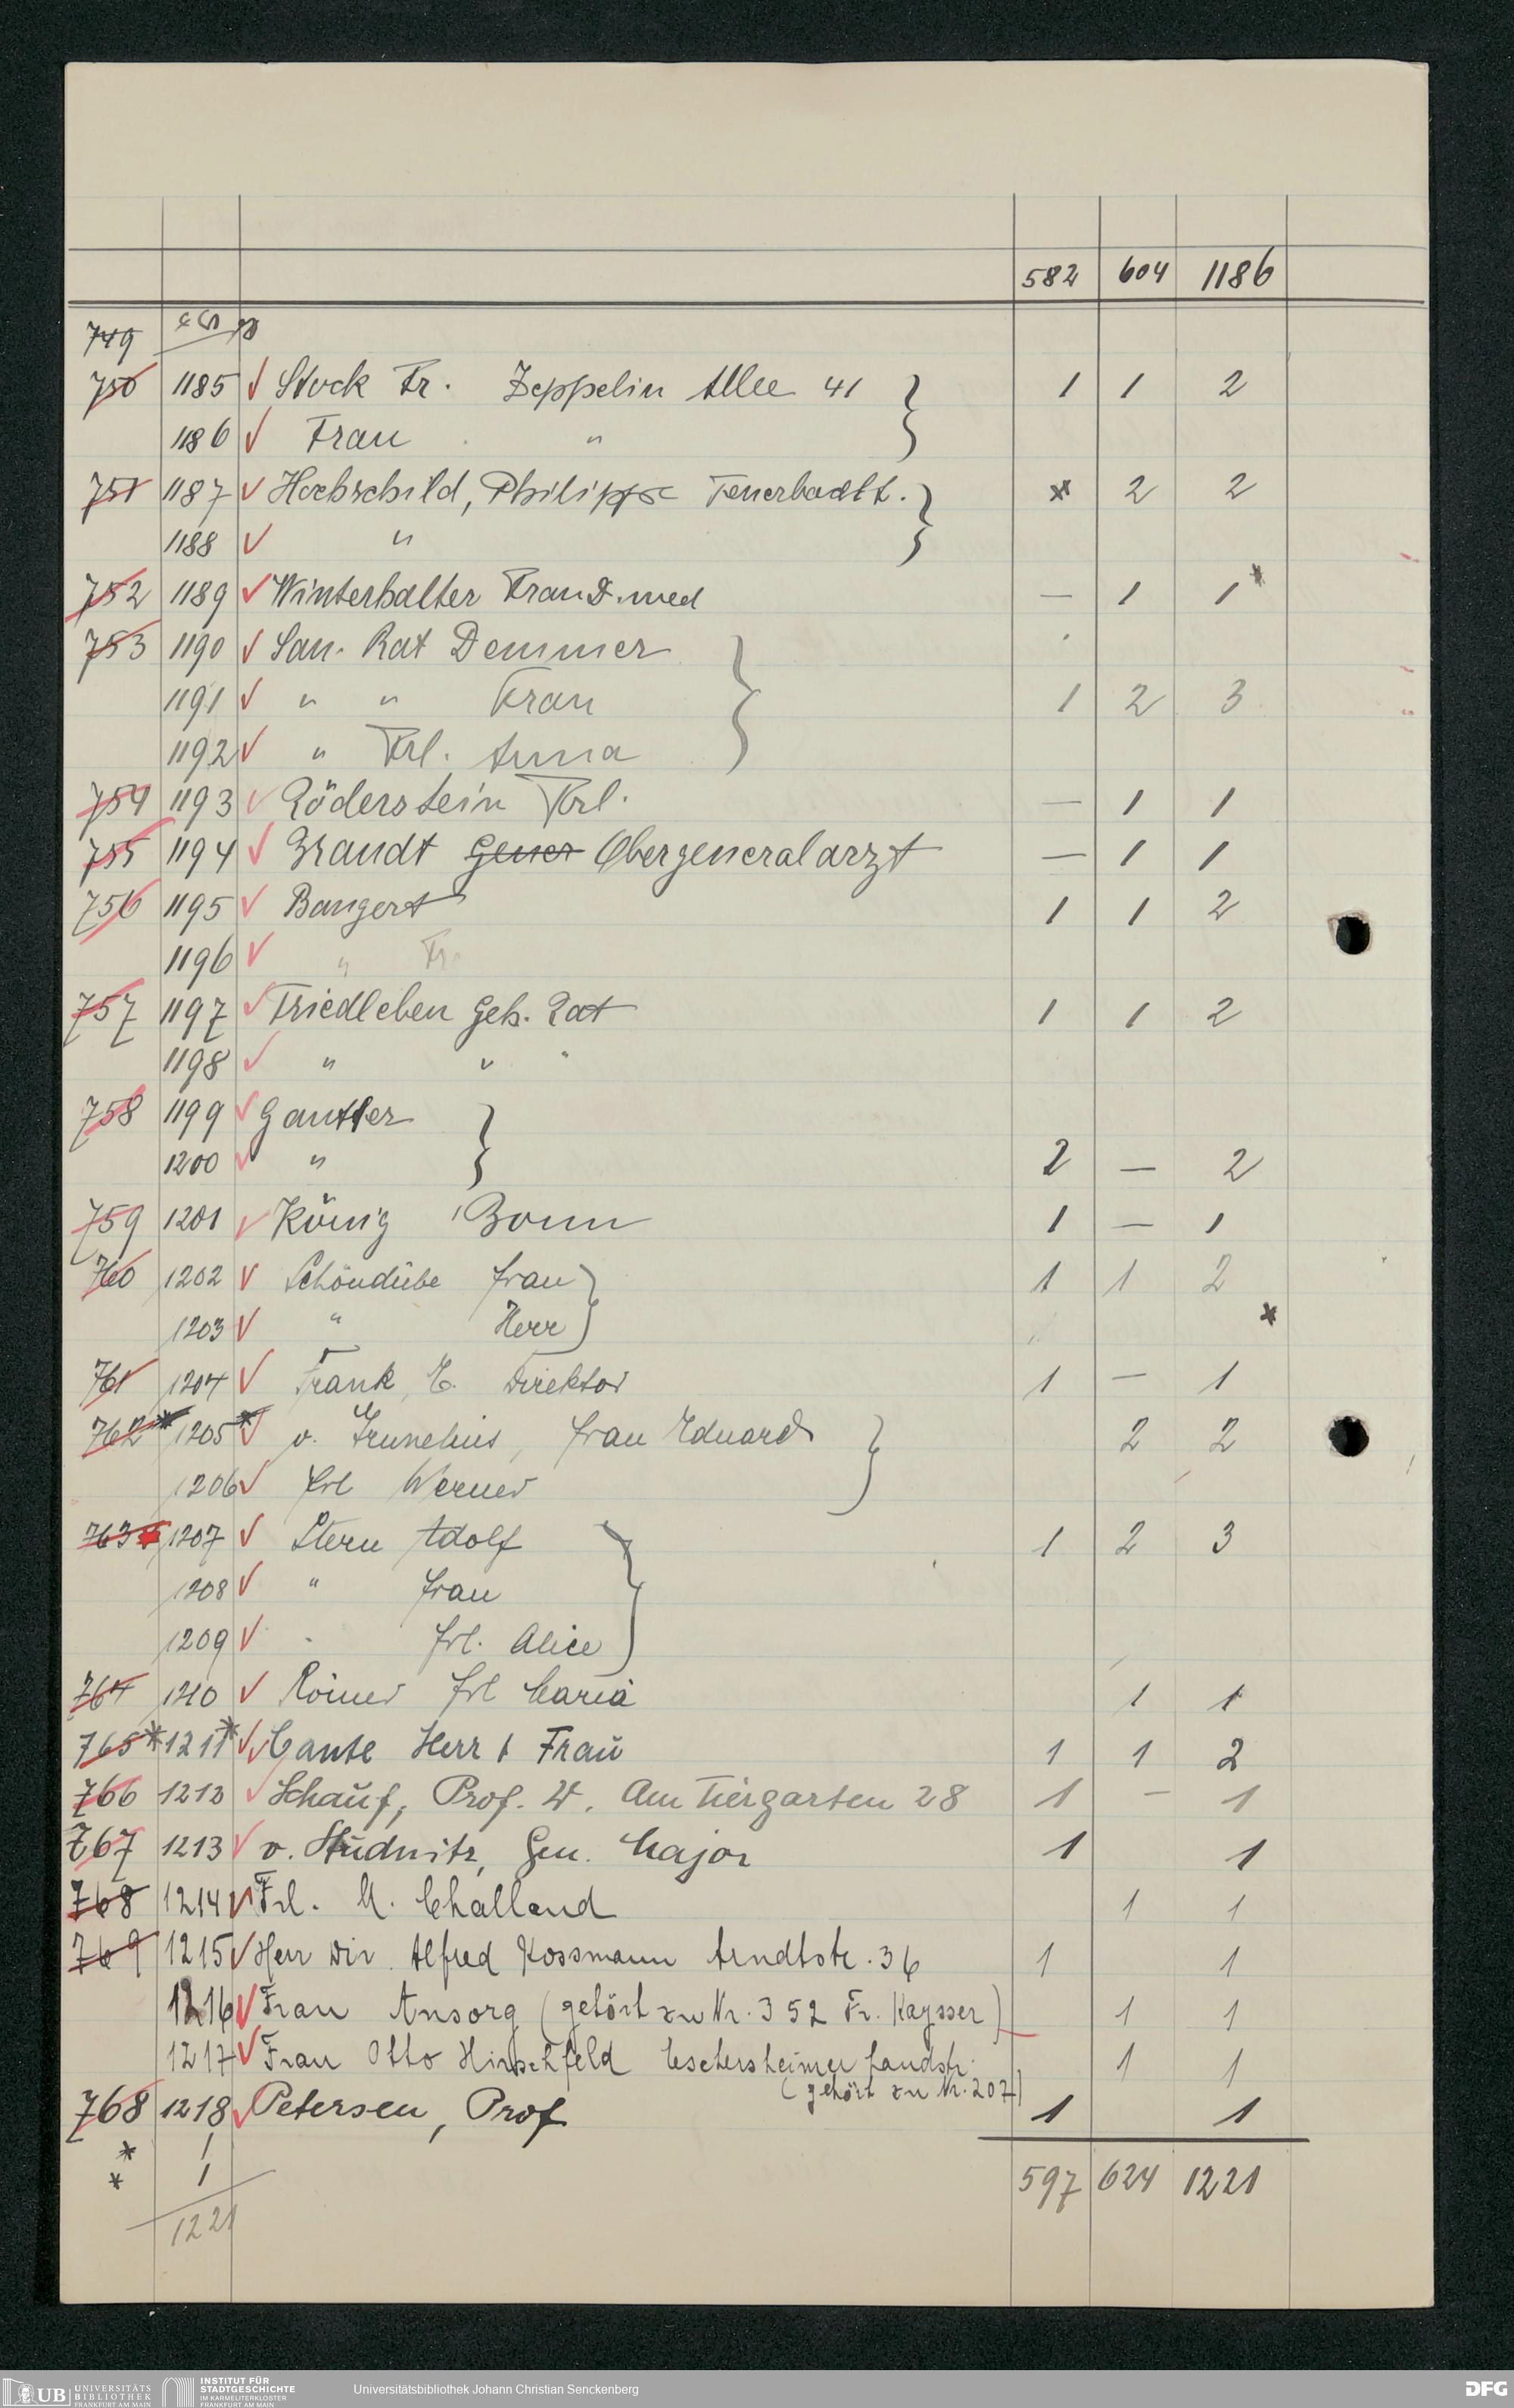 582 604 1186
749
750 1185 √ Stock Fr. Zeppelin Allee 41 } 1 1 2
1186 √ Frau " 
751 1187 √ Hochschild, Philipp Feuerbachst. } * 2 2
1188 √ "
752 1189 √ Winterhalter Frau D. med — 1 1*
753 1190 √ San. Rat Demmer
1191 √ " " Frau } 1 2 3
1192 √ " Frl. Anna
754 1193 √ Röderstein Frl. — 1 1
755 1194 √ Brandt Gener Obergeneralarzt — 1 1
756 1195 √ Bangert 1 1 2
1196 √ " Fr.
757 1197 √ Friedleben Geh. Rat 1 1 2
1198 √ " " "
758 1199 √ Gantter }
1200 √ " 2 — 2
759 1201 √ König Bonn 1 — 1
760 1202 √ Schöndube Frau } 1 1 2
1203 √ " Herr *
761 1204 √ Frank, E. Direktor 1 — 1
762* 1205* √ v. Grunelius, Frau Eduard } 2 2
1206 √ Frl Werner
763 1207 √ Stern Adolf } 1 2 3
1208 √ " Frau
1209 √ " Frl. Alice
764 1210 √ Römer Frl Maria 1 1
765* 1211* √√ Herr + Frau 1 1 2
766 1212 √ Schauf, Prof. W. Am Tiergarten 28 1 — 1
767 1213 √ v. Studnitz, Gen. Major 1 1
768 1214 √ Frl. M. Challand 1 1
769 1215 √ Herr Dir. Alfred Kossmann Arndtstr. 36 1 1
1216 √ Frau Ansorg (gehört zu Nr. 352 Fr. Kaysser) 1 1
1217 √ Frau Otto Hirschfeld Eschersheimer Landstr. 1 1
(gehört zu Nr. 207)
768 1218 √ Petersen, Prof 1 1
* 1
* 1
597 624 1221
1221
UB UNIVERSITÄTS BIBLIOTHEK FRANKFURT AM MAIN
INSTITUT FÜR STADTGESCHICHTE IM KARMELITERKLOSTER FRANKFURT AM MAIN
Universitätsbibliothek Johann Christian Senckenberg
DFG